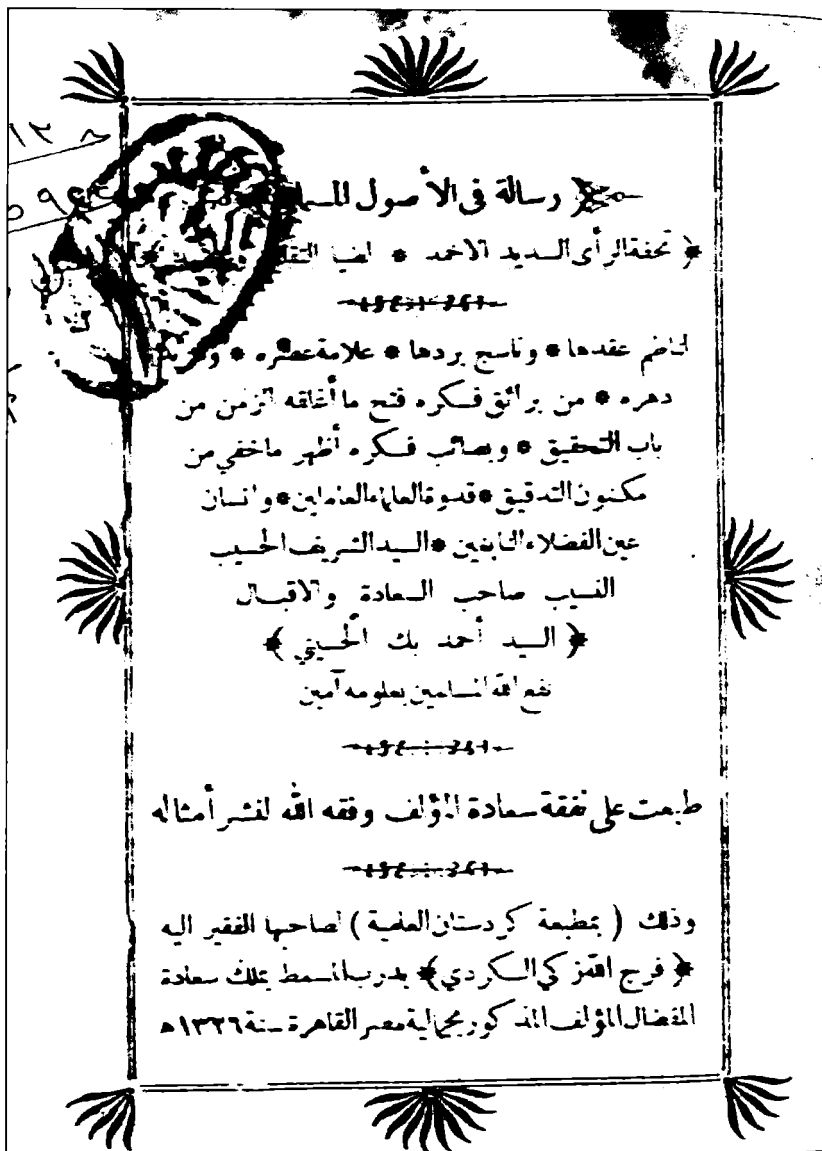 رسالة فى الأصول
﴿ تحفة الرأى السديد الاحمد *
لناظم عقدها * وناسج بردها * علامة عصره *
دهره * من برائق فكره فتح ما أغلقه الزمن من
باب التحقيق * وبصائب فكره أظهر ماخفي من
مكنون التدقيق * قدوة العلماء العاملين * وانسان
عين الفضلاء النابغين * السيد الشريف الحسيب
النسيب صاحب السعادة والاقبال
﴿ السيد أحمد بك الحسيني ﴾
نفع الله المسلمين بعلومه آمين
طبعت على نفقة سعادة المؤلف وفقه الله لنشر أمثاله
وذلك ( بمطبعة كردستان العلمية ) لصاحبها الفقير اليه
﴿ فرج الله زكي الكردي ﴾ بدرب المسمط بملك سعادة
المفضال المؤلف المذكور بجمالية مصر القاهرة سنة ١٣٢٦ه